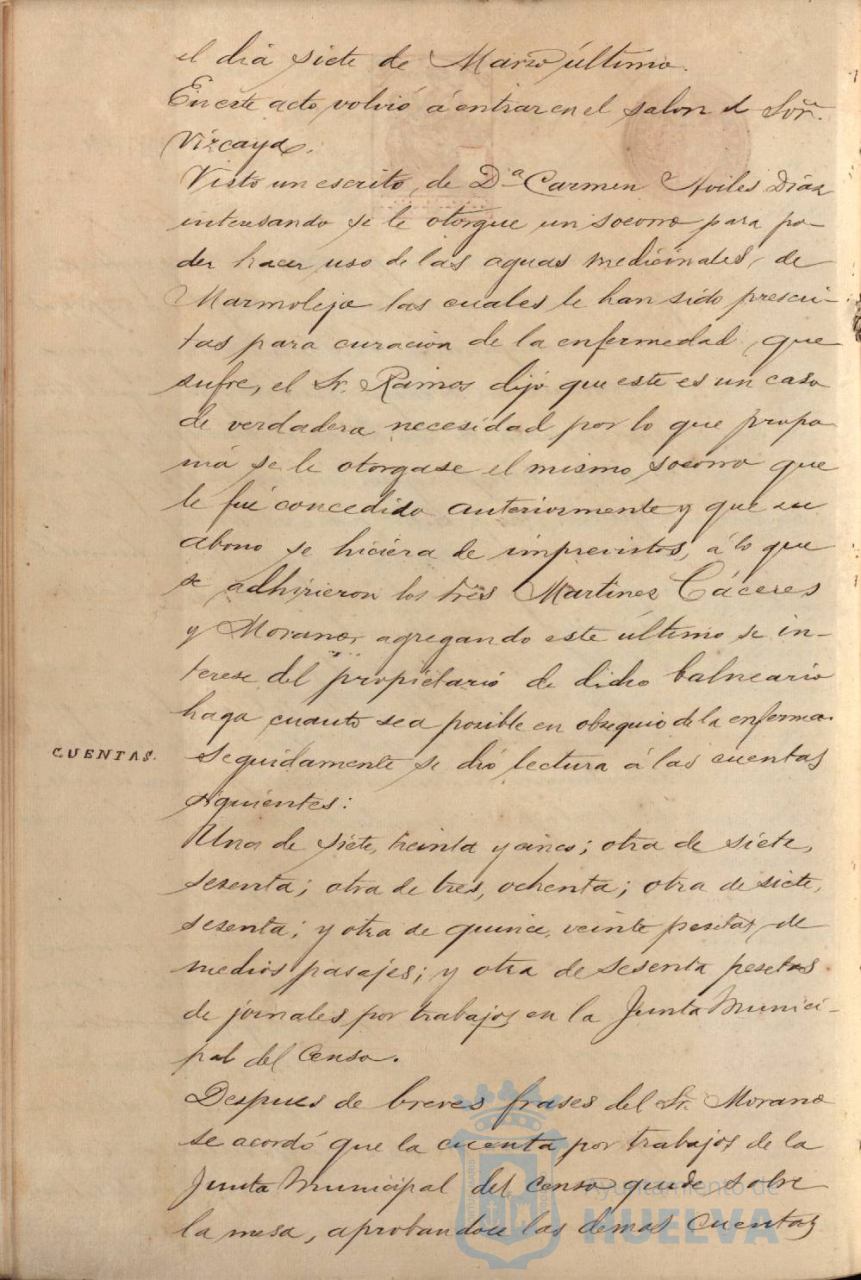 el dia siete de Marzo último.
En este acto volvió á entrar en el salon el Sor.
Vizcaya.
Visto un escrito, de D.ª Carmen Aviles Diaz
interesando se le otorgue un socorro para po-
der hacer uso de las aguas medicinales, de
Marmolejo las cuales le han sido prescri-
tas para curacion de la enfermedad que
sufre, el Sr. Ramos dijó que este es un caso
de verdadera necesidad por lo que propo
niá se le otorgase el mismo socorro que
le fué concedido anteriormente y que su
abono se hiciera de imprevistos, á lo que
se adhirieron los Sres Martinez Cáceres
y Morano, agregando este último se in-
terese del propietario de dicho balneario
haga cuanto sea posible en obsequio de la enferma.
CUENTAS.
Seguidamente se dió lectura á las cuentas
siguientes:
Una de siete, treinta y cinco; otra de siete,
sesenta; otra de tres, ochenta; otra de siete,
sesenta; y otra de quince, veinte pesetas, de
medios pasajes; y otra de sesenta pesetas
de jornales por trabajos en la Junta Munici-
pal del Censo.
Despues de breves frases del Sr. Morano
se acordó que la cuenta por trabajos de la
Junta Municipal del Censo quede sobre
la mesa, aprobandose las demas cuentas
Ayuntamiento de
HUELVA